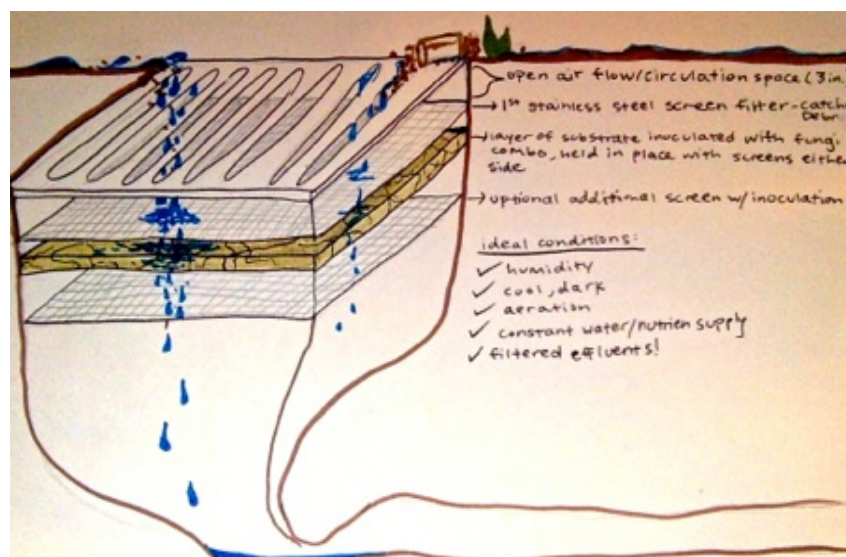 open air flow/circulation space (3 in.
1st stainless steel screen filter-catch
Debri
layer of substrate inoculated with fungi
combo, held in place with screens either
side
optional additional screen w/ inoculation
ideal conditions:
✓ humidity
✓ cool, dark
✓ aeration
✓ constant water/nutrien supply
✓ filtered effluents!